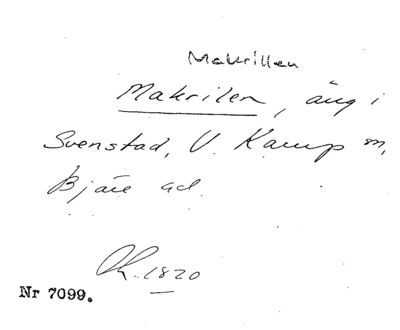 Makrillen
Makrilen, äng i
Svenstad, V. Karup sn,
Bjäre hd.
1820
Nr 7099.